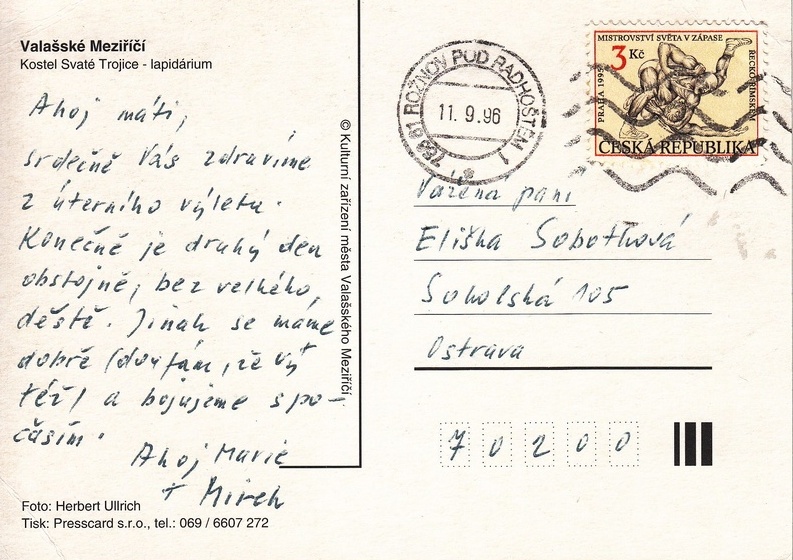 Valašské Meziříčí
Kostel Svaté Trojice - lapidárium
Ahoj máti,
srdečně Vás zdravíme
z úterního výletu.
Konečně je druhý den
obstojně, bez velkého
deště. Jinak se máme
dobře (doufám, že vy
též) a bojujeme s po-
časím.
Ahoj Marie
+ Mirek
Foto: Herbert Ullrich
Tisk: Presscard s.r.o., tel.: 069 / 6607 272
© Kulturní zařízení města Valašského Meziříčí
756 61 ROŽNOV POD RADHOŠTĚM 1
11.9.96
MISTROVSTVÍ SVĚTA V ZÁPASE
ŘECKO-ŘÍMSKÉM
PRAHA 1995
3 Kč
ČESKÁ REPUBLIKA
Vážená paní
Eliška Sobotková
Sokolská 105
Ostrava
70200